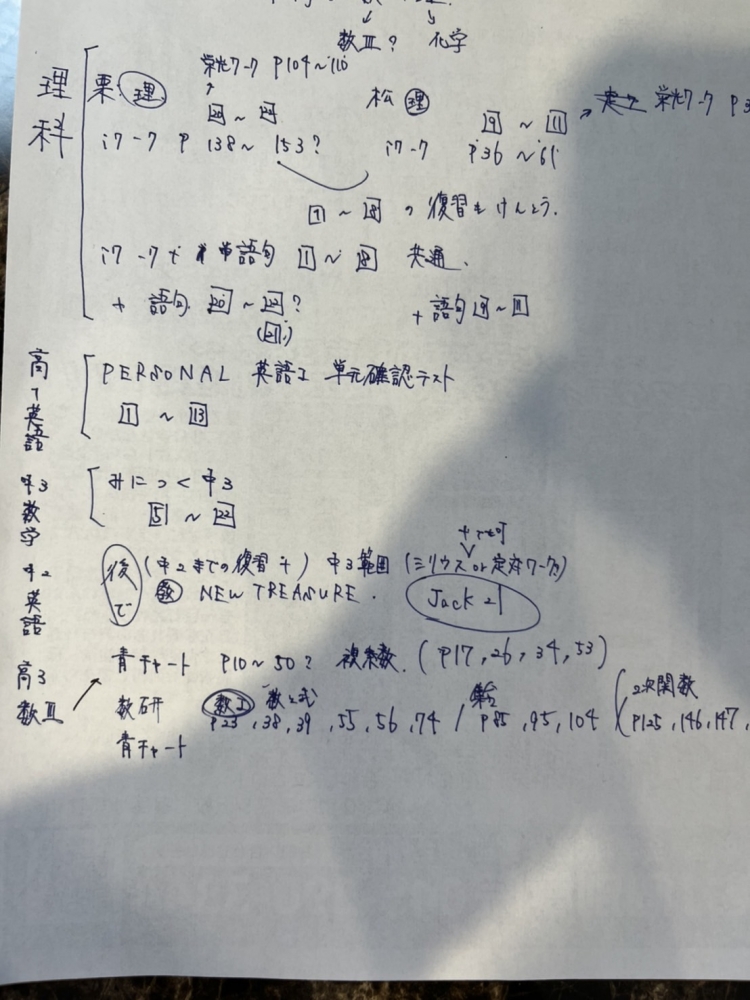 数Ⅲ? 化学
理科
栄光ワーク P104~110
栗 理 松 理
9 ~ 11 → 栄光ワーク P3
iワーク P 138~ 153? iワーク P36 ~61
1 ~ 18 の 復習もけんとう.
iワーク 単語句 1 ~ 18 共通.
+ 語句 20 ~ 22? + 語句 9 ~ 11
(21)
高1英語
PERSONAL 英語I 単元確認テスト
1 ~ 13
中3数学
みにつく中3
5 ~ 22
+でも可
中2英語
後で (中2までの復習 +) 中3範囲 (ミリウス or 定対ワーク)
NEW TREASURE. Jack 21
高3数Ⅲ
青チャート P10~50? 複素数. (P17, 26, 34, 53)
数研 数I 数と式 集合 2次関数
P23, 38, 39, 55, 56, 74 / P85, 95, 104 P125, 146, 147,
青チャート